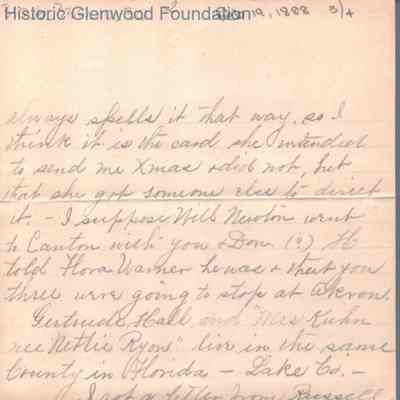 Historic Glenwood Foundation
19, 1888 3/4
always spells it that way, so I
think it is the card she intended
to send me Xmas & did not, but
that she got someone else to direct
it. - I suppose Will Newton went
to Canton with you & Dow (?) He
told Flora Warner he was & that you
three were going to stop at Akron.
Gertrude Hall and "Mrs Kuhn
nee Nettie Ryon" live in the same
County in Florida - Lake Co. -
I got a letter from Russell